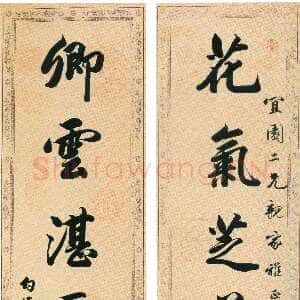 宜園二兄親家雅正
花氣芝
卿雲湛
Shufawang.CN